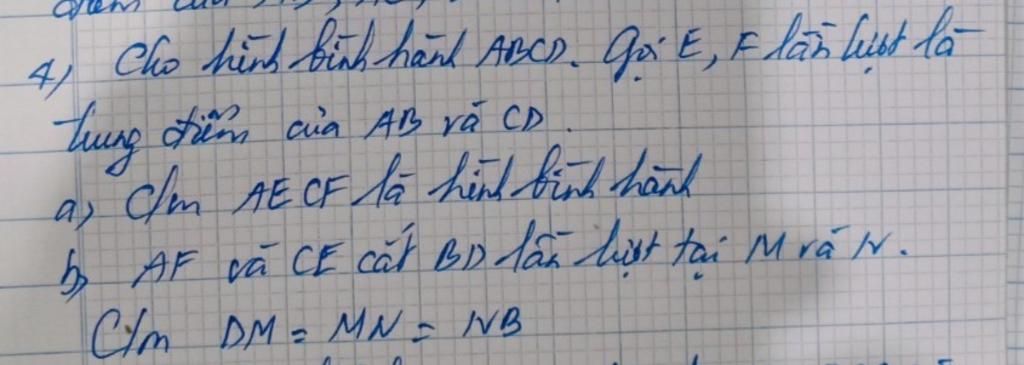 4) Cho hình bình hành ABCD. Gọi E, F lần lượt là
trung điểm của AB và CD.
a) C/m AECF là hình bình hành
b) AF và CE cắt BD lần lượt tại M và N.
C/m DM = MN = NB